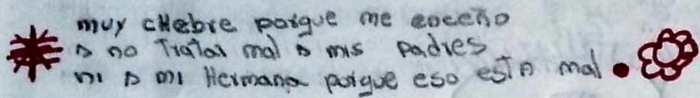 muy cHebre porque me enceño
a no Tratar mal a mis padres
ni a mi Hermana porque eso esta mal.